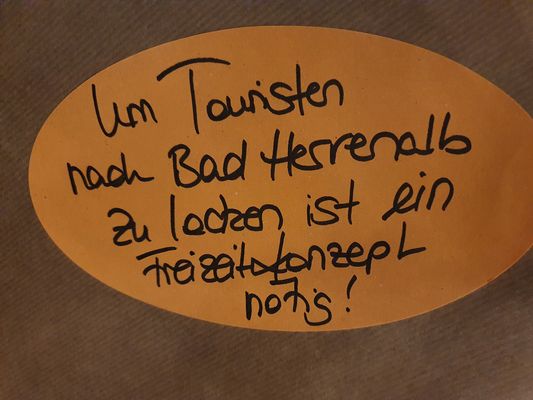 Um Touristen
nach Bad Herrenalb
zu locken ist ein
Freizeitkonzept
nötig!